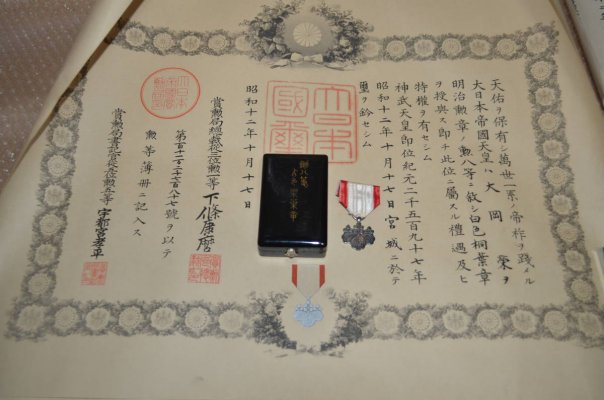 天佑ヲ保有シ萬世一系ノ帝祚ヲ踐メル
大日本帝國天皇ハ大岡榮ヲ
明治勲章ノ勲八等ニ敍シ白色桐葉章
ヲ授與ス卽チ此位ニ屬スル禮遇及ヒ
特權ヲ有セシム
神武天皇卽位紀元二千五百九十七年
昭和十二年十月十七日宮城ニ於テ
璽ヲ鈐セシム
大日本
國璽
昭和十二年十月十七日
賞勲局總裁從三位勲二等下條康麿
第百十二万二千七百八十七號ヲ以テ
勲等簿冊ニ記入ス
賞勲局書記官從六位勲五等宇都宮孝平
勲八等
白色桐葉章